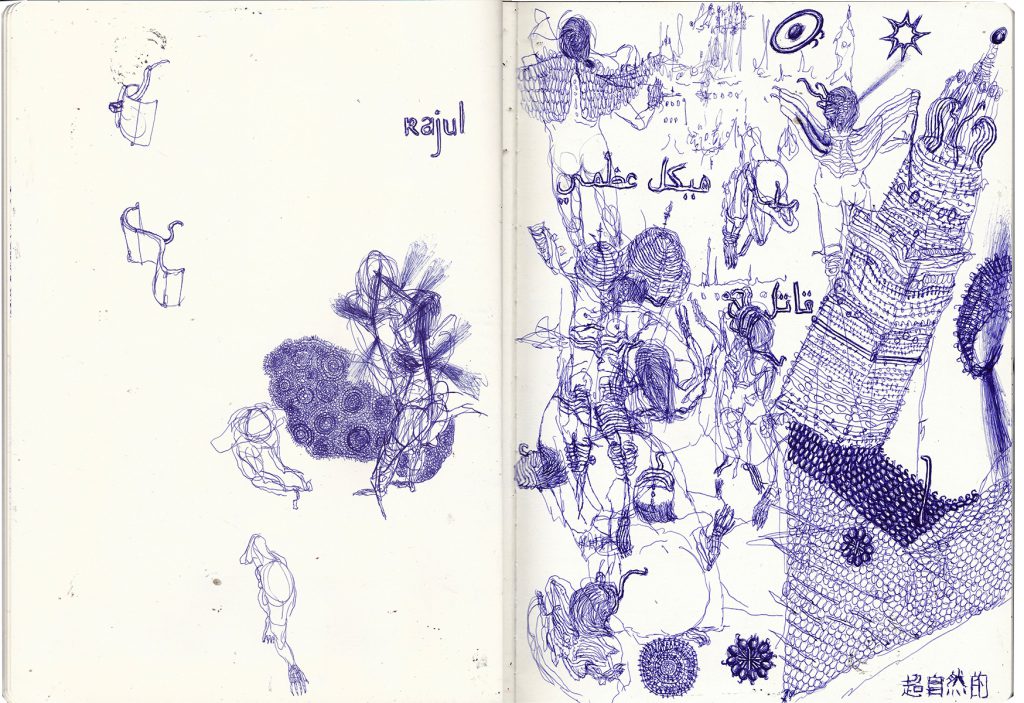 Rajul
هيكل عظمي
قاتل
超自然的